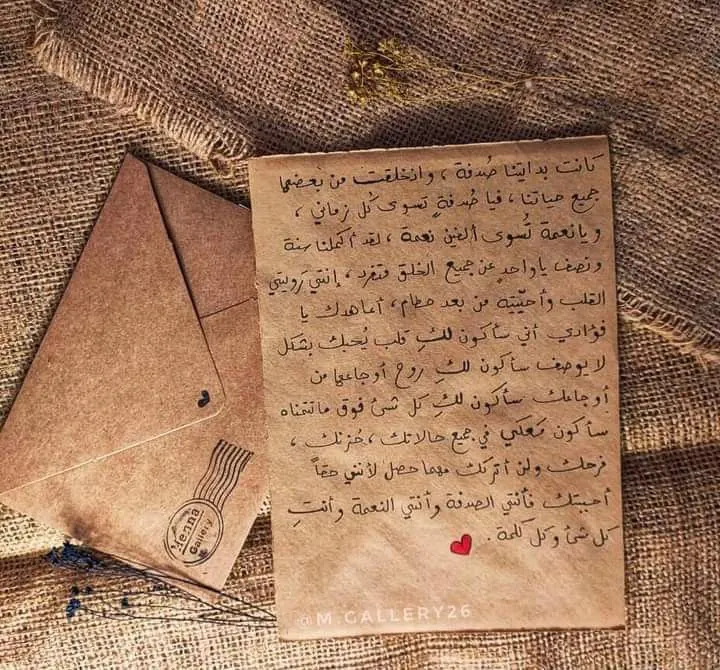 كانت بدايتنا صُدفة ، وانخلقت من بعضها
جميع حياتنا ، فيا صُدفةٍ تسوى كل زماني ،
ويا نعمة تُسوى ألفين نعمة ، لقد أكملنا سنة
ونصف يا واحدٍ عن جميع الخلق متفرد ، إنتي رَويتي
القلب وأحيّيتيه من بعد حطام ، أعاهدك يا
فؤادي أني سأكون لكِ قلب يُحبك بشكل
لا يوصف سأكون لكِ روح أوجاعها من
أوجاعك سأكون لكِ كل شئ فوق ماتتمناه
سأكون مَعكي في جميع حالاتك ، حُزنك ،
فرحك ولن أتركك مهما حصل لأنني حقاً
أحببتك فأنتي الصدفة وأنتي النعمة وأنتِ
كل شئ وكل كلمة .
Menna
Gallery
@M.GALLERY26